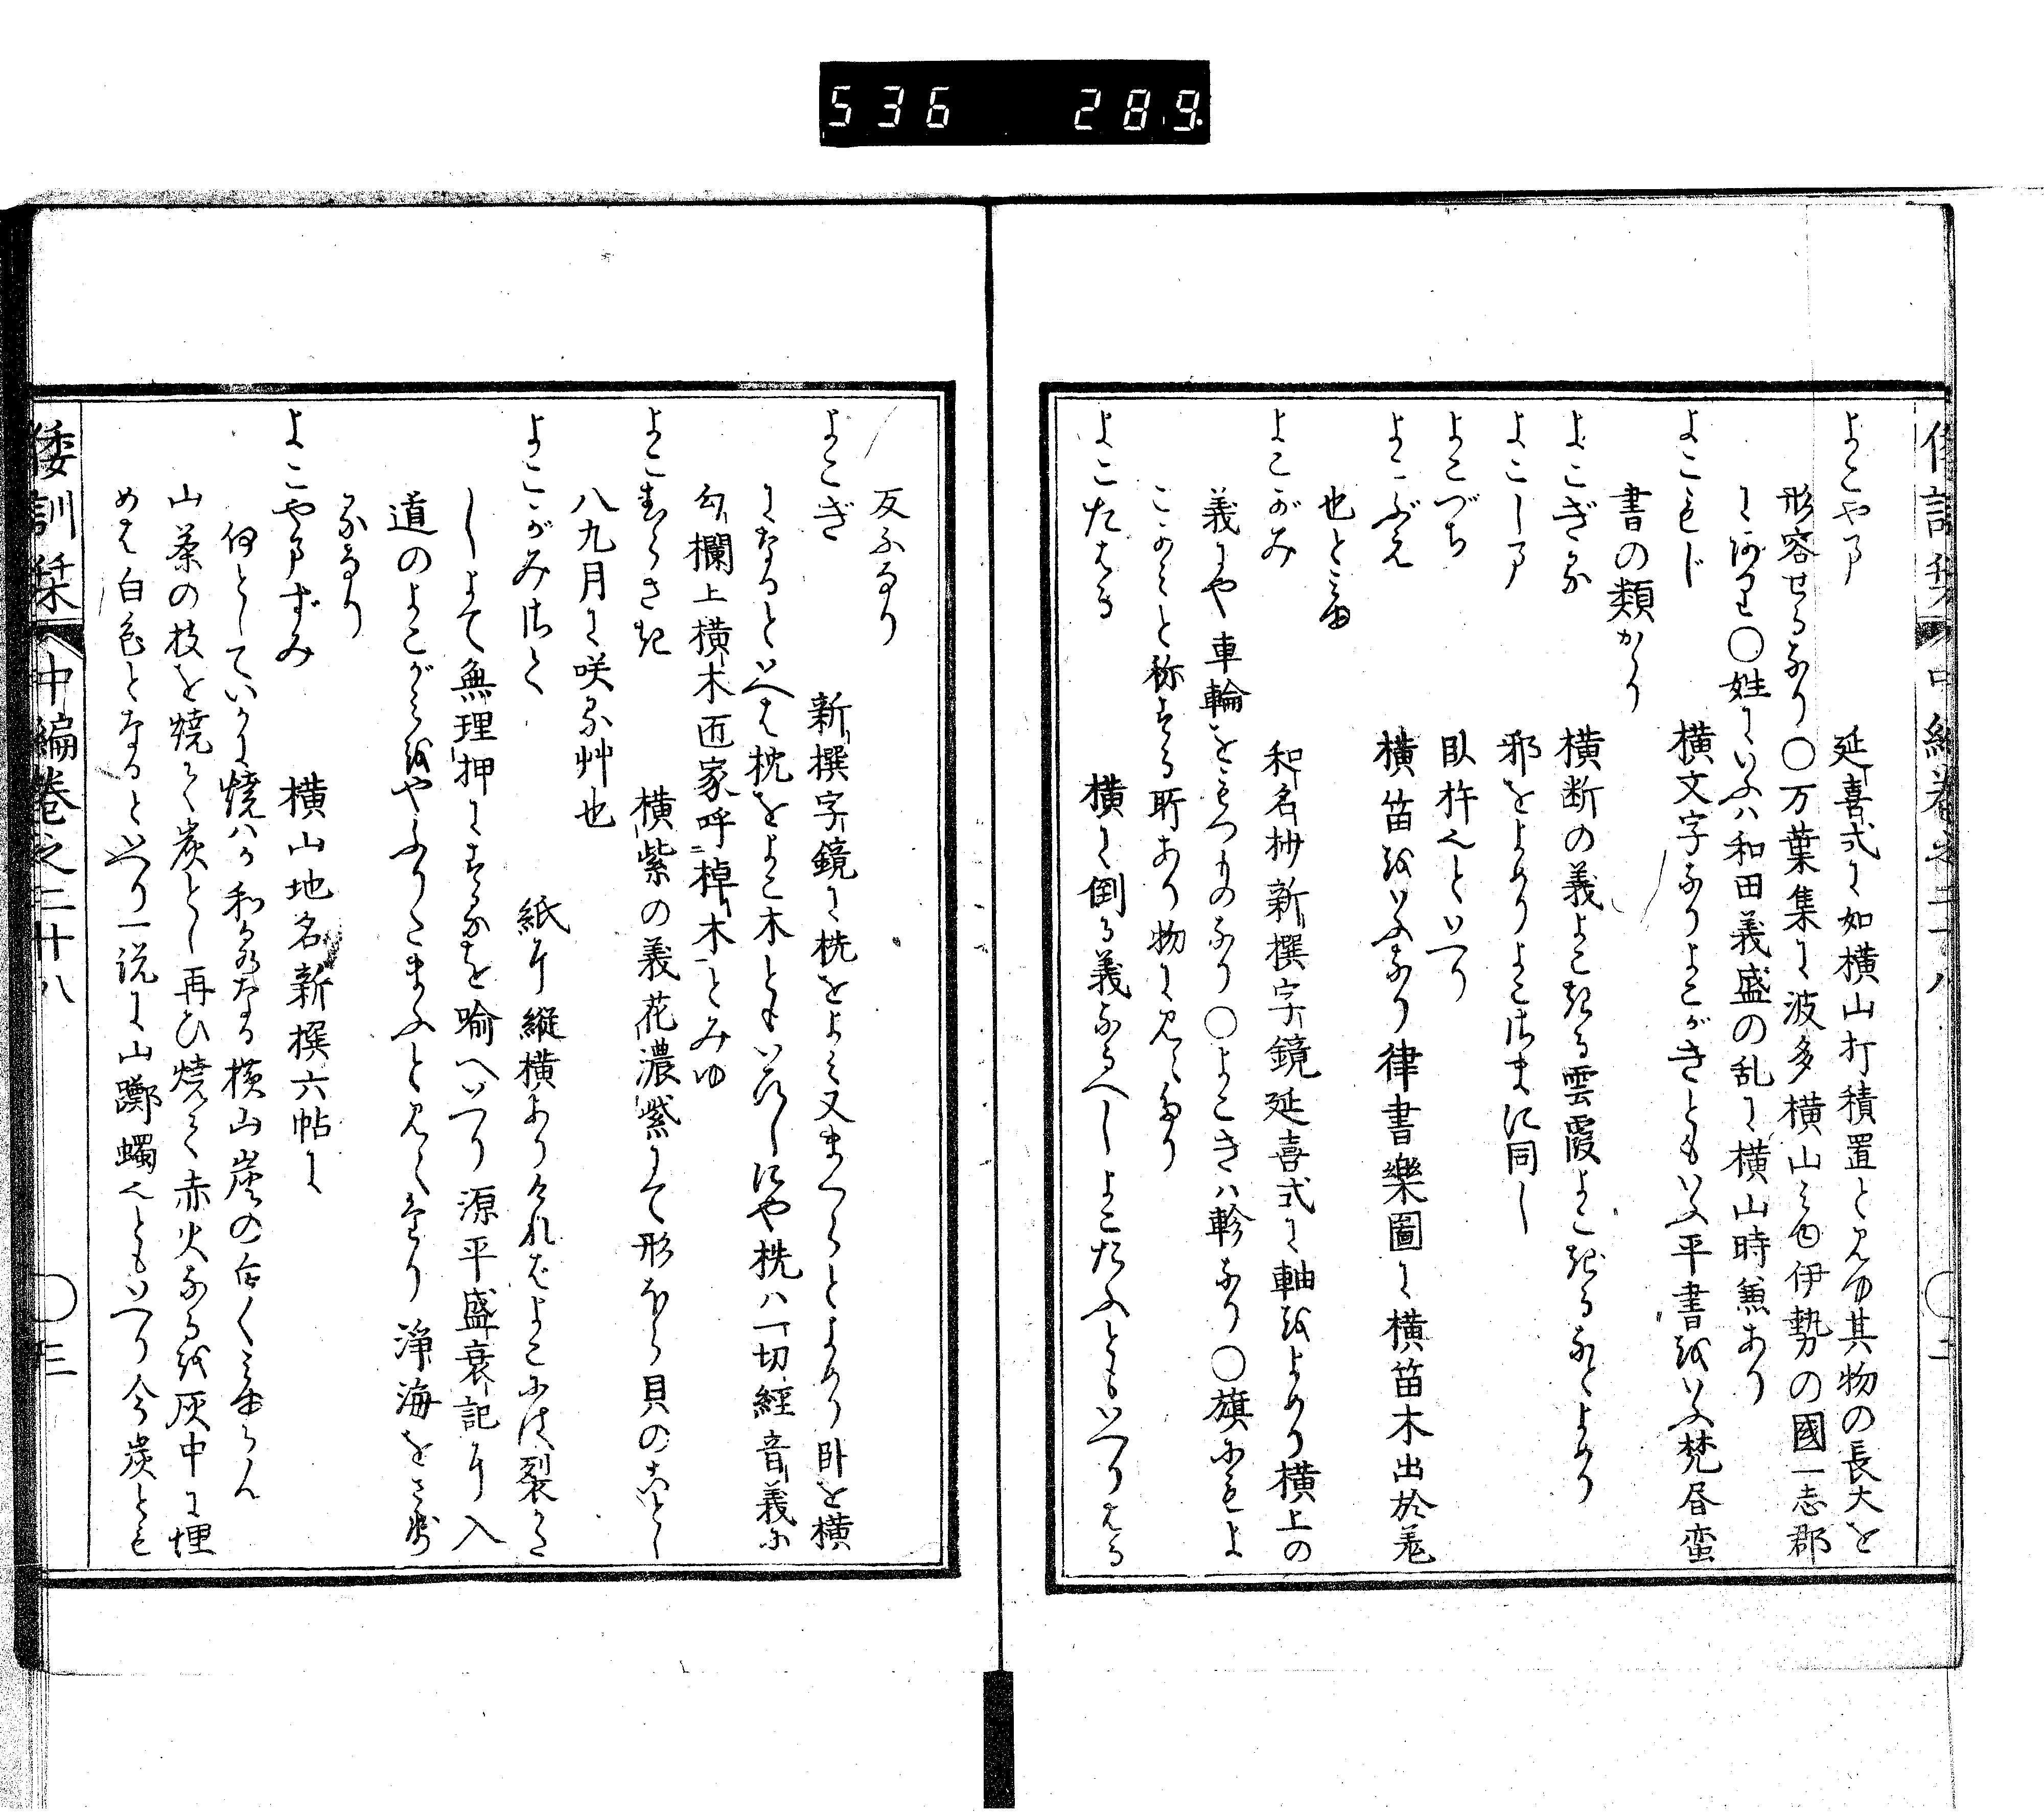 536 289
よこやま 延喜式に如横山打積置と見ゆ其物の長大を
形容せるなり〇万葉集に波多横山みゆ伊勢の國一志郡
にあり〇姓にいふハ和田義盛の乱に横山時兼あり
よこもじ 横文字なりよこがきともいふ平書をいふ梵唇蛮
書の類なり
よこぎる 横断の義よこきる雲霞よこきるなとよめり
よこしま 邪をよめりよこさまに同し
よこづち 臥杵也といへり
よこぶえ 横笛をいふなり律書樂圖に横笛木出於羗
也と
よこがみ 和名抄新撰字鏡延喜式に軸をよめり横上の
義にや車輪をもつものなり〇よこきハ軫なり〇旗にもよ
こかみと称する所あり物に見えたり
よこたはる 横に倒る義なるへしよこたふともいへりはる
反ふなり
よこぎ 新撰字鏡に桄をよみ又まくらとよめり卧を横
になるといへは枕をよこ木ともいひしにや桄ハ一切經音義に
勾欄上横木匠家呼棹木とみゆ
よこむらさき 横紫の義花濃紫にて形ほら貝のことし
八九月に咲る艸也
よこがみさく 紙に縦横ありされはよこには裂かた
しよて無理押にするを喩へいへり源平盛衰記に入
道のよこがみをやふりたまふと見えたり淨海をさせ
るなり
よこやまずみ 横山地名新撰六帖に
何としていかに燒ハか和泉なる横山炭の白くみゆらん
山茶の枝を燒て炭とし再ひ燒て赤火なるを灰中に埋
めは白色となるといへり一説に山躑躅也ともいへり今炭とも
倭訓栞 中編卷之二十八 〇三